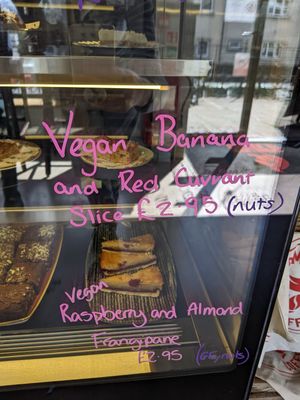 Vegan Banana
and Red Currant
Slice £2.95 (nuts)
Vegan
Raspberry and Almond
Frangipane
£2.95